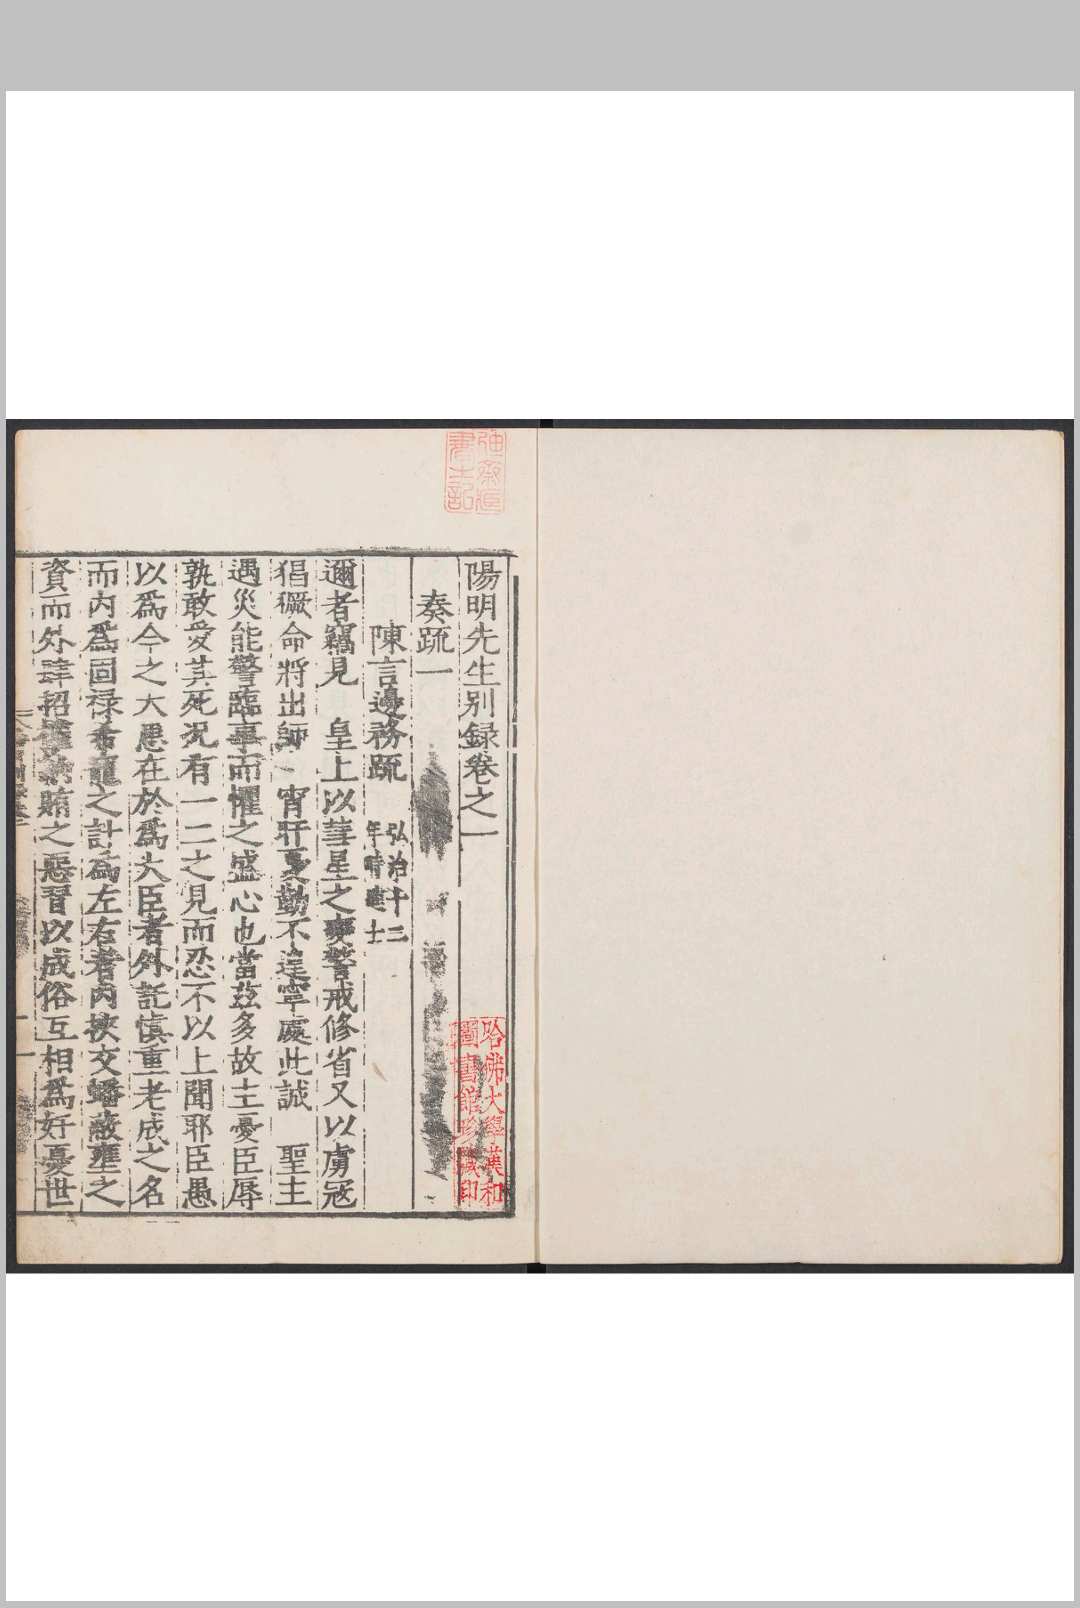 陽明先生別録卷之一
奏疏一
陳言邊務疏 弘治十二
年時進士
邇者竊見 皇上以彗星之變警戒修省又以虜寇
猖獗命將出師 宵旰憂勤不遑寧處此誠 聖主
遇災能警臨事而懼之盛心也當茲多故主憂臣辱
孰敢愛其死况有一二之見而忍不以上聞耶臣愚
以爲今之大患在於爲大臣者外託慎重老成之名
而内爲固禄希寵之計爲左右者内挾交蟠蔽壅之
資而外肆招權納賄之惡習以成俗互相爲奸憂世
哈佛大學漢和
圖書館珍藏印